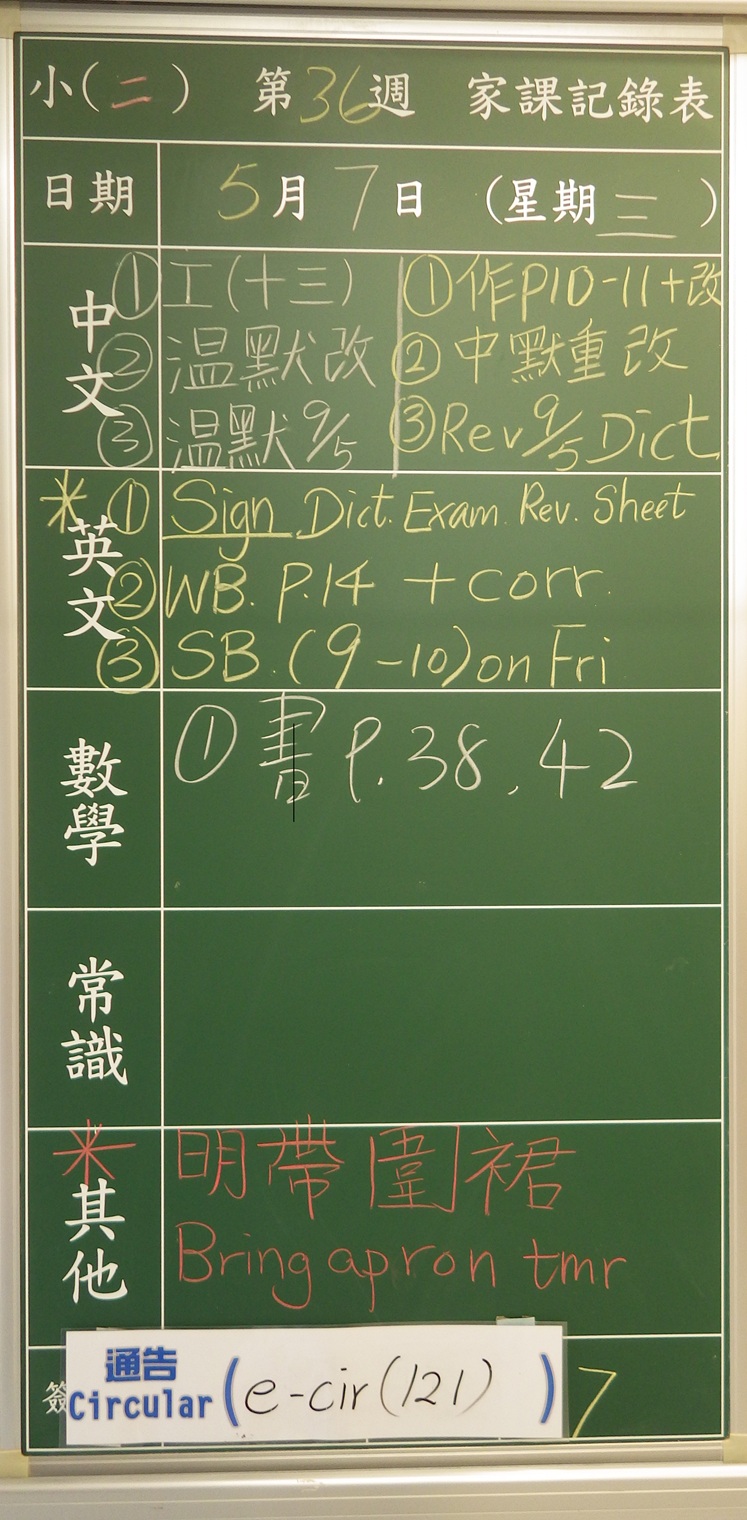 小(二) 第36週 家課記錄表
日期 5月7日 (星期三)
中文
① 工(十三)
② 溫默改
③ 溫默 9/5
① 作P10-11+改
② 中默重改
③ Rev 9/5 Dict
* 英文
① Sign Dict. Exam. Rev. Sheet
② WB. P.14 + corr.
③ SB. (9-10) on Fri
數學
① 書 P.38, 42
常識
* 其他
明帶圍裙
Bring apron tmr
簽
通告
Circular (e-cir(121))
7